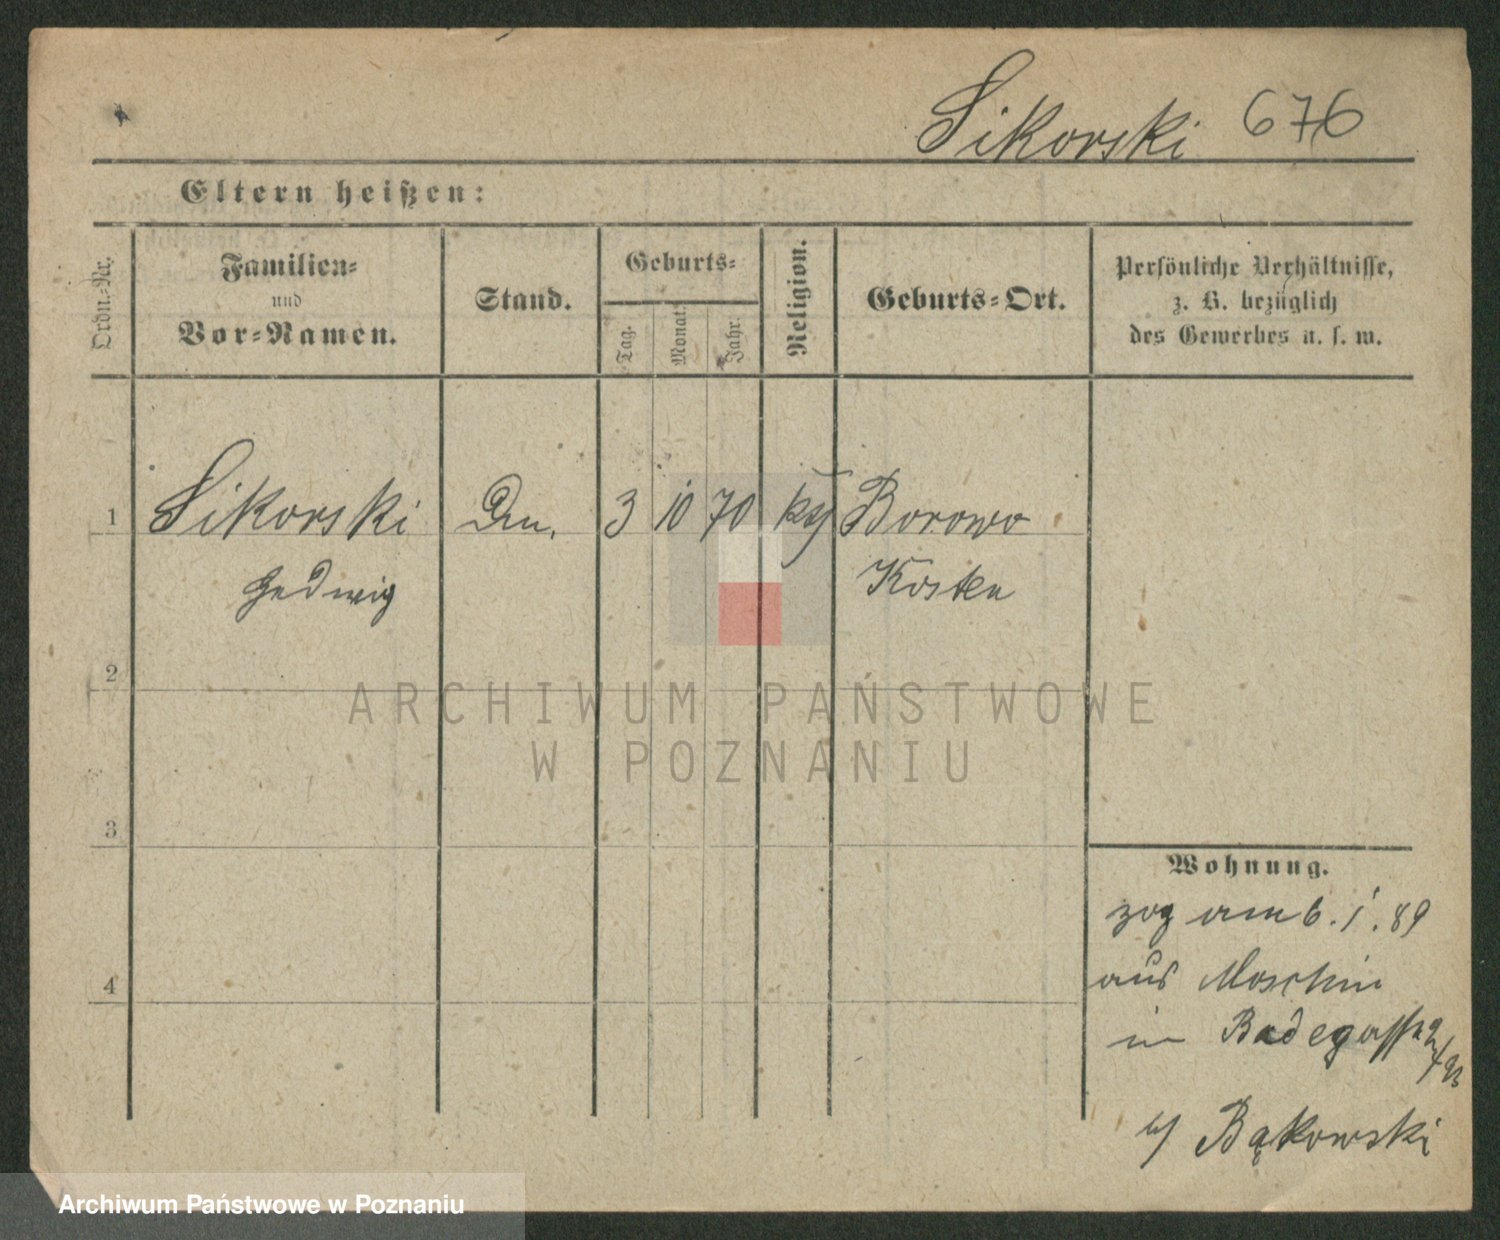 Sikorski 676
Eltern heißen:
Ordn.-Nr.
Familien-
und
Vor-Namen.
Stand.
Geburts-
Tag.
Monat.
Jahr.
Religion.
Geburts-Ort.
Persönliche Verhältnisse,
z. B. bezüglich
des Gewerbes u. s. w.
1 Sikorski 3 10 70 Borowo
Hedwig Kosten
2
3
4
Wohnung.
zog am 6. 1. 89
aus Moschin
in Badegasse
Bąkowski
ARCHIWUM PAŃSTWOWE
W POZNANIU
Archiwum Państwowe w Poznaniu